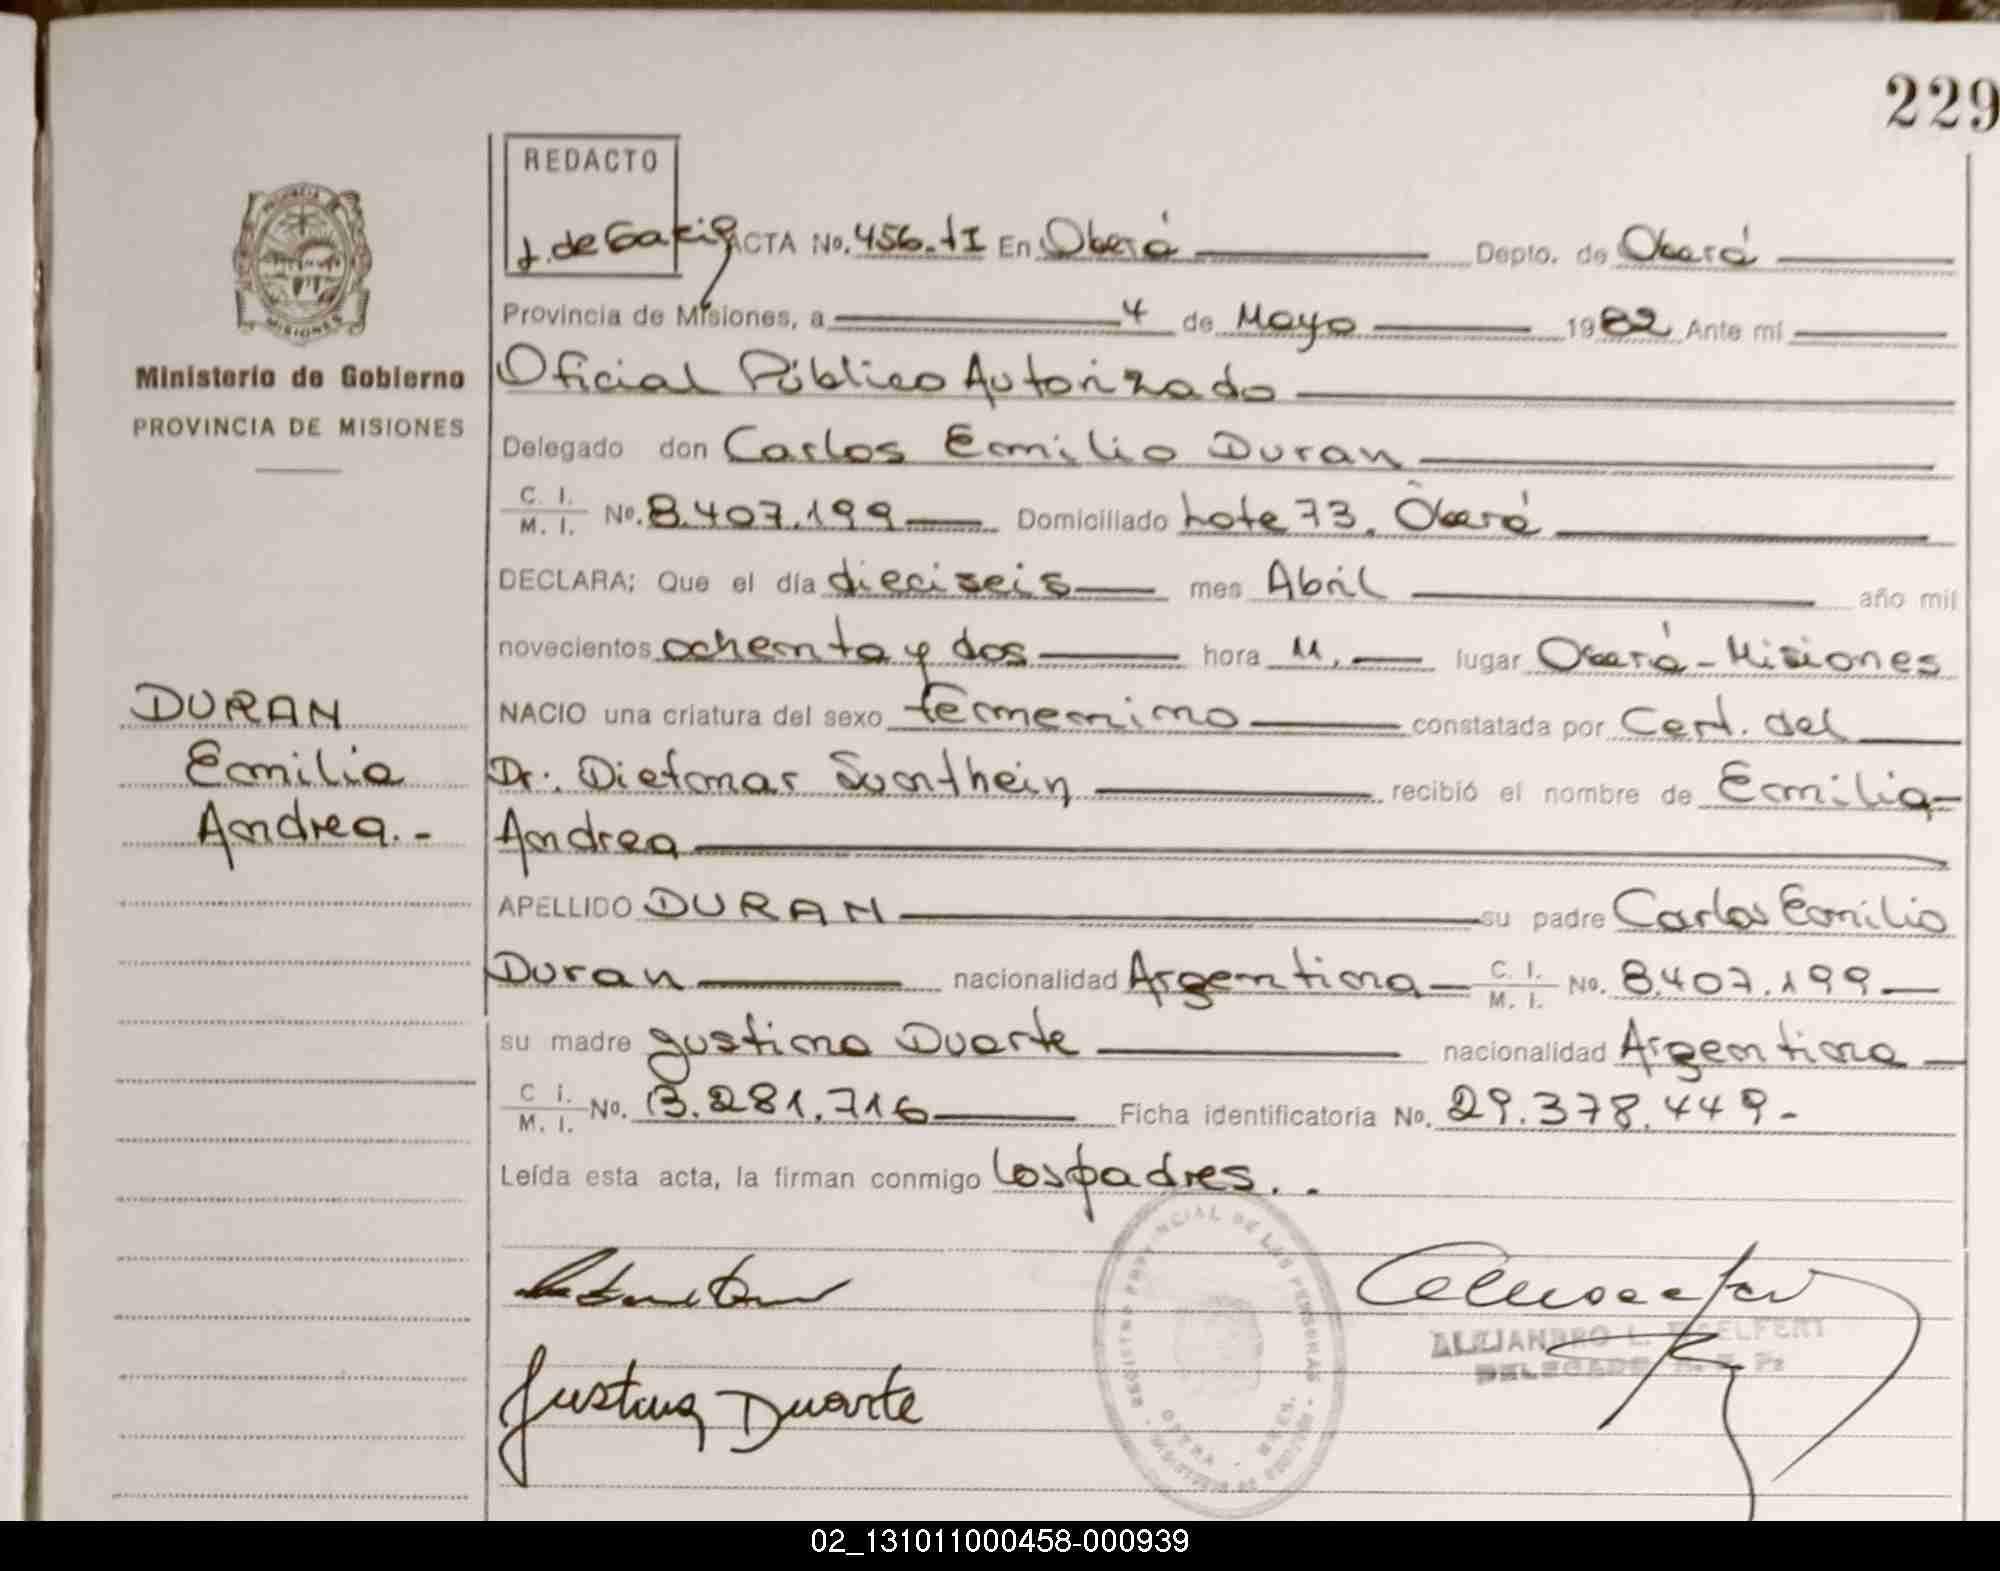 229
REDACTO
J. de Gakig
ACTA No. 456. tI En Oberá Depto. de Oberá
Provincia de Misiones, a 4 de Mayo 1982 Ante mí
Oficial Público Autorizado
Delegado don Carlos Emilio Duran
C. I. / M. I. No. 8.407.199 Domiciliado Lote 73. Oberá
DECLARA; Que el día dieciseis mes Abril año mil
novecientos ochenta y dos hora 11. lugar Oberá - Misiones
NACIO una criatura del sexo femenino constatada por Cert. del
Dr. Dietmar Sonthein recibió el nombre de Emilia-
Andrea
APELLIDO DURAN su padre Carlos Emilio
Duran nacionalidad Argentina C. I. / M. I. No. 8.407.199
su madre Justina Duarte nacionalidad Argentina
C I. / M. I. No. 13.281.716 Ficha identificatoria No. 29.378.449-
Leída esta acta, la firman conmigo los padres. .
Justina Duarte
ALEJANDRO L.
DELEGADO
REGISTRO PROVINCIAL DE LAS PERSONAS
OBERA - MNES.
MISIONES
Ministerio de Gobierno
PROVINCIA DE MISIONES
DURAN
Emilia
Andrea.-
02_131011000458-000939